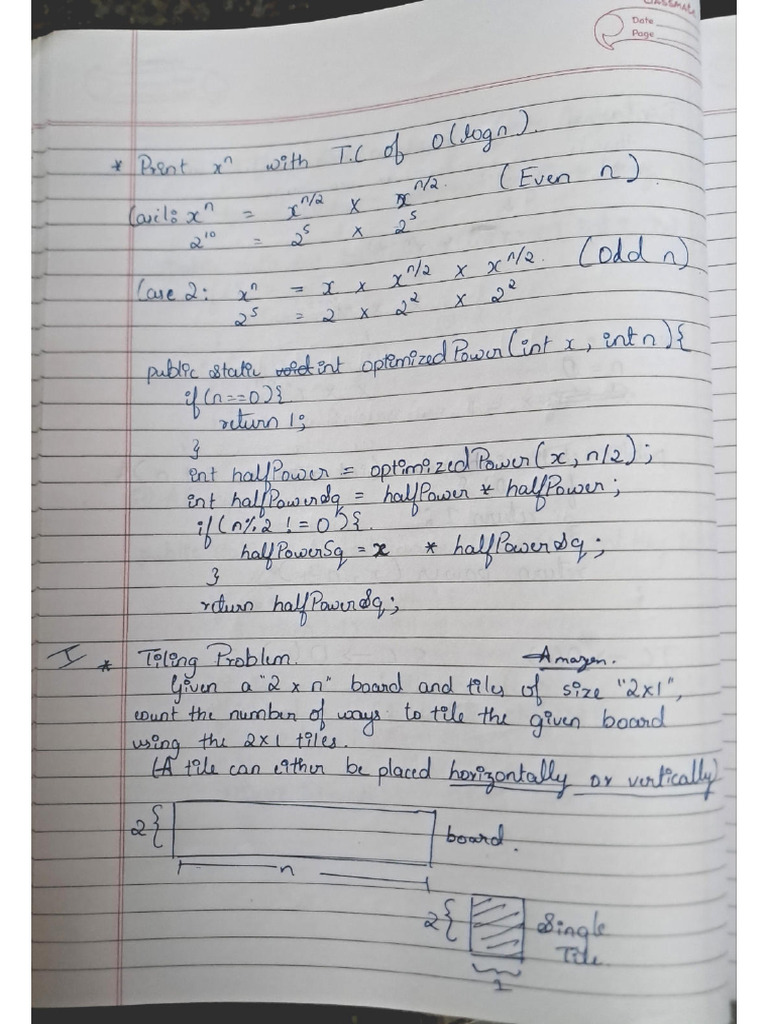 CLASSMATE
Date
Page
* Print xⁿ with T.C of O(logn).
Case1: xⁿ = x^n/2 × x^n/2. (Even n)
2¹⁰ = 2⁵ × 2⁵
Case 2: xⁿ = x × x^n/2 × x^n/2. (Odd n)
2⁵ = 2 × 2² × 2²
public static void int optimizedPower(int x, int n){
if(n==0){
return 1;
}
int halfPower = optimizedPower(x, n/2);
int halfPowerSq = halfPower * halfPower;
if(n%2 != 0){
halfPowerSq = x * halfPowerSq;
}
return halfPowerSq;
I * Tiling Problem. Amazon.
Given a "2 x n" board and tiles of size "2x1",
count the number of ways to tile the given board
using the 2x1 tiles.
(A tile can either be placed horizontally or vertically)
2{ board.
n
2{ Single
Tile
1